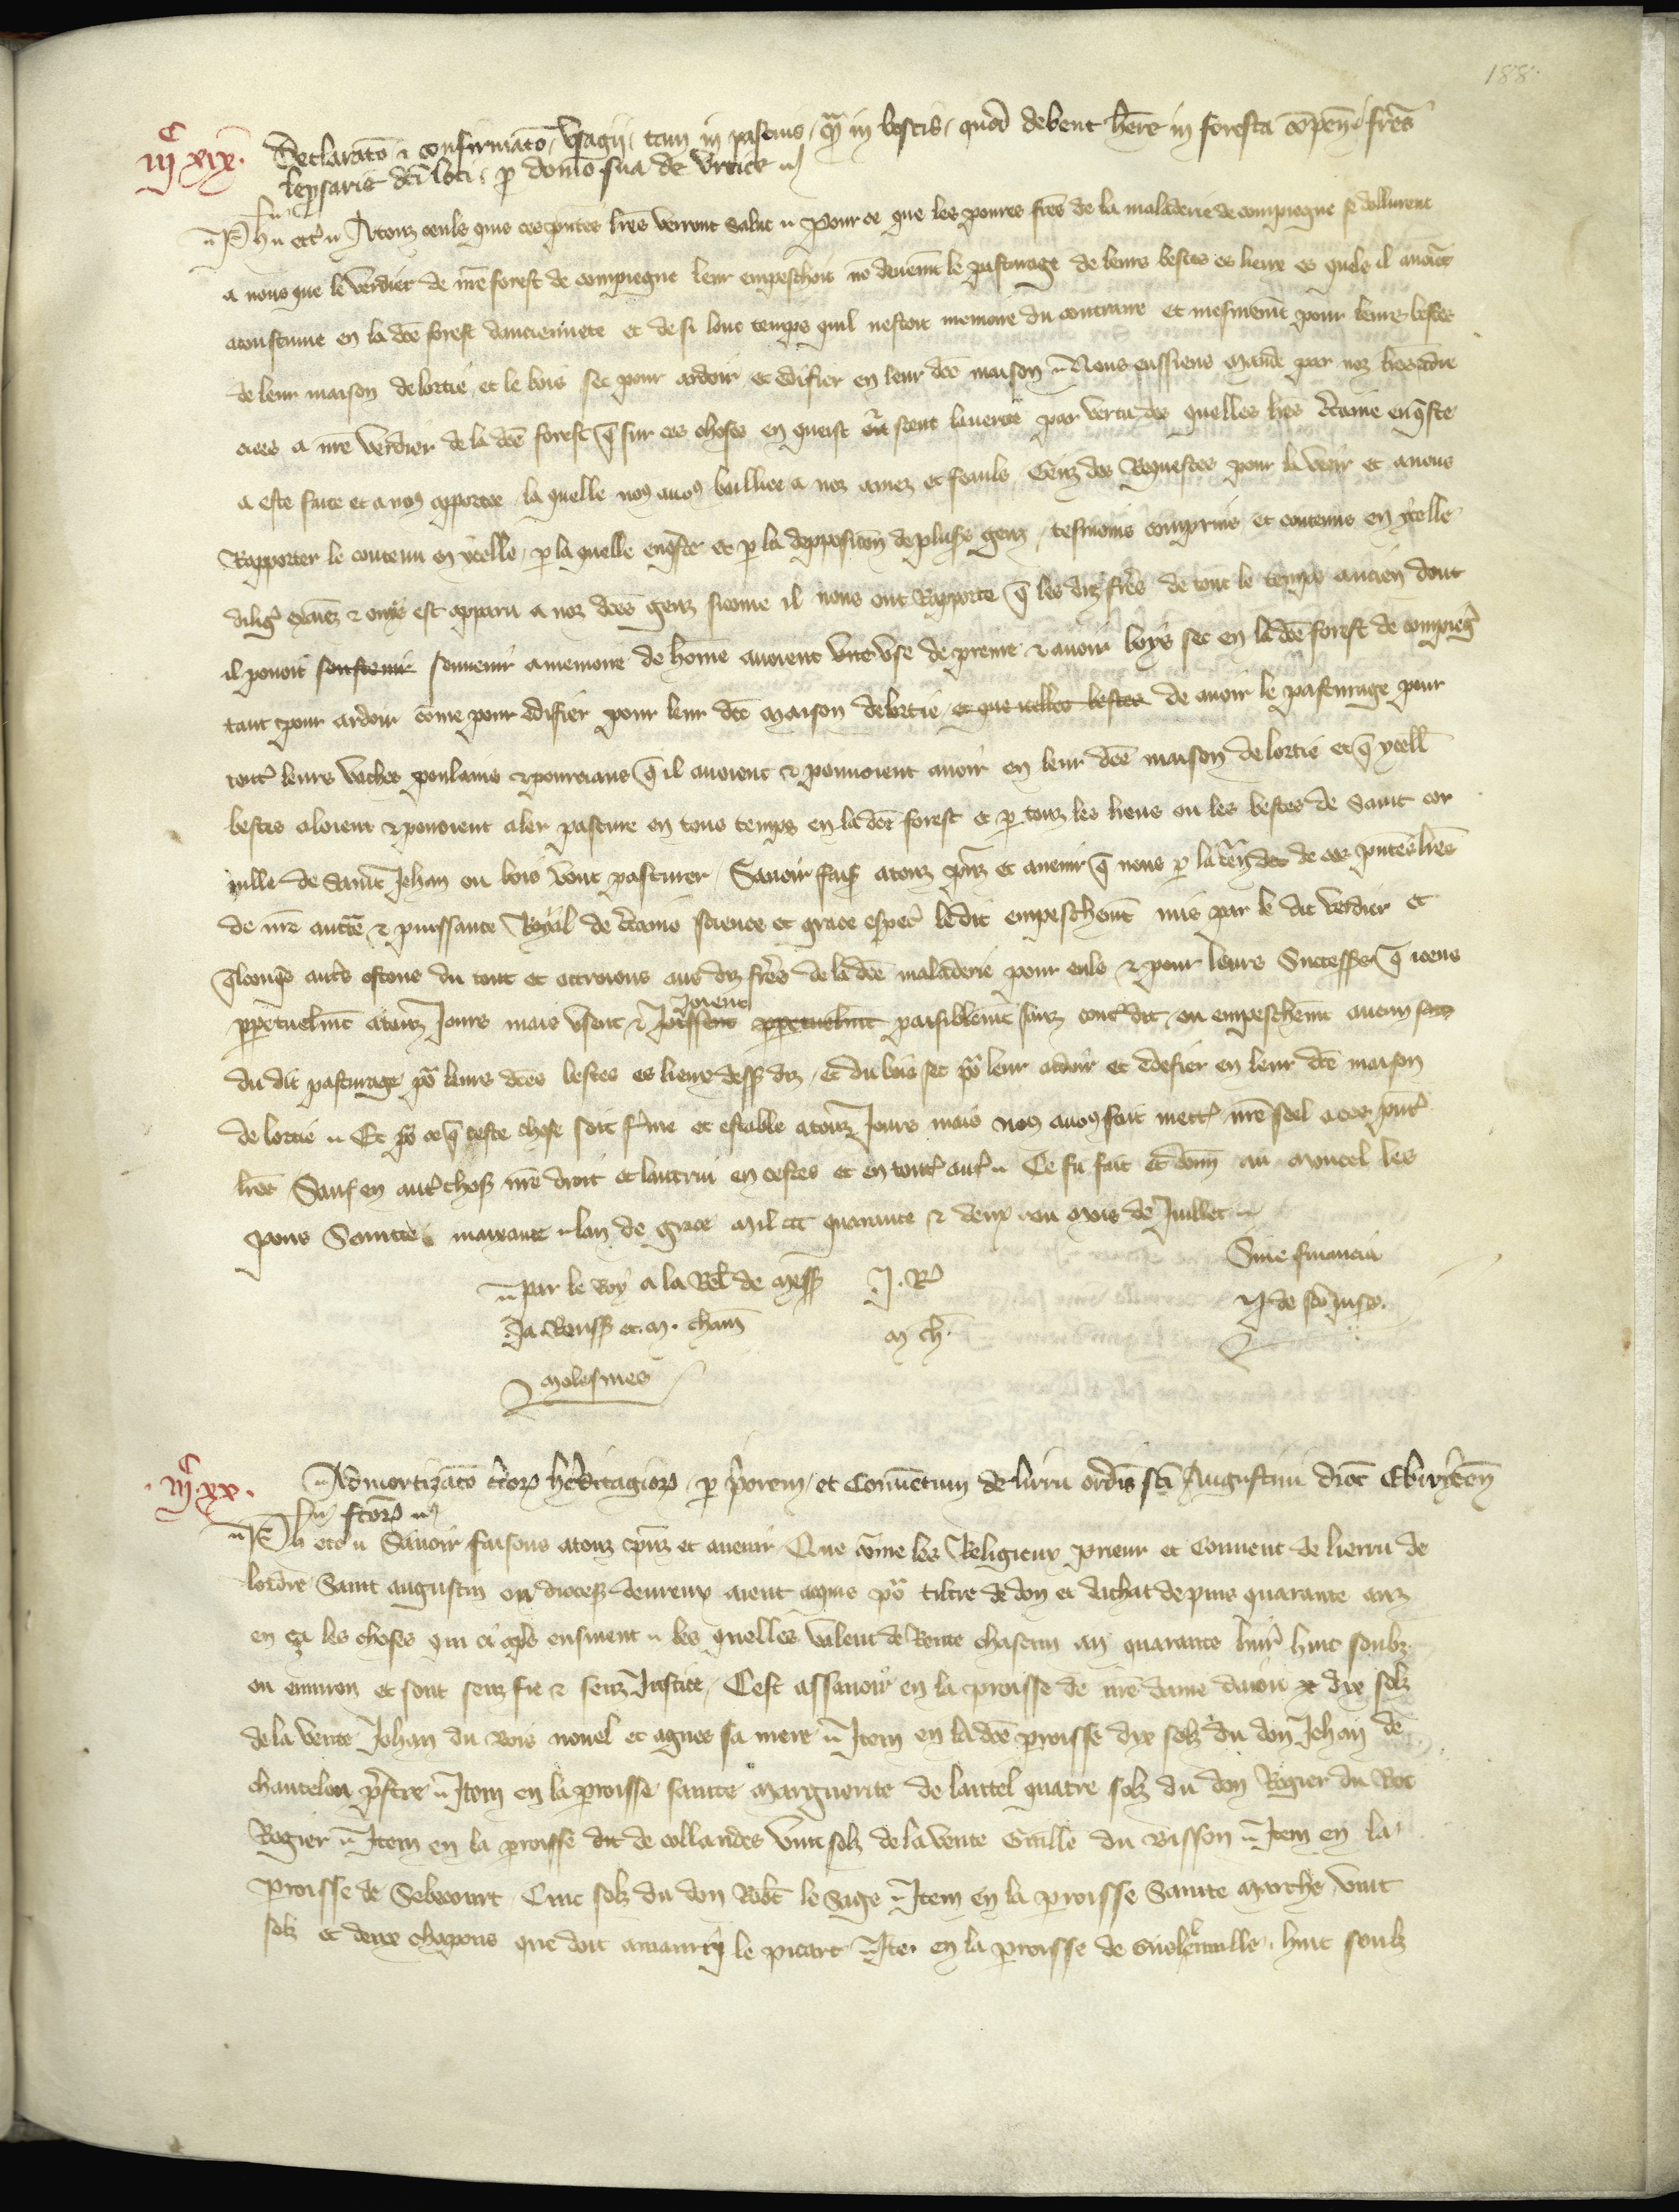 188
iij^c xix. Declarato & confirmato usagii, tam in pascuis, qm in boscis, quod debent here in foresta compen, fres
leprsarie dci loci, p domo sua de Urtica
Ph etc Atouz ceuls qui ces pntes lres verront salut Pour ce que les poures freres de la maladerie de compiegne se dollurent
a nous que le verdier de nre forest de compiegne leur empeschoit no deuemt le pasturage de leurs bestes es lieux es quels il auoiet
acoustume en la dce forest dancienneté et de si lonc temps quil nestoit memoire du contraire et mesmemt pour leurs bestes
de leur maison de lortie, et le bois sec pour ardoir et edifier en leur dce maison Nous eussiens mande par noz lres
a nre verdier de la dce forest q sur ces choses en queist et sceut la verite par vertu des quelles lres ctaine enqste
a este faite et a nos apportee, la quelle nos auos bailliee a noz amez et feauls Genz des Requestes pour la veoir et a nous
Rapporter le contenu en ycelle, p la quelle enqste et p la depposicon de plusrs genz, tesmoins comprins et contenus en ycelle
est apparu a noz dces genz sicome il nous ont Rapporte q les diz fres de tout le temps ancien dont
il pouoit soustenir souuenir a memoire de home auoient use de prenre & auoir boys sec en la dce forest de compieg
tant pour ardoir come pour edifier pour leur dce maison de lortie, et que icelles bestes de auoir le pasturage pour
tout leurs vaches poulains & pourciaus q il auoient & pouuoient auoir en leur dce maison de lortie et q ycell
bestes aloient & pouoient aler pasture en tous temps en la dce forest et p touz les lieus ou les bestes de Saint Cor
nille de Saint Jehan ou bois vont pasturer, Sauoir fais atouz pnz et auenir q nous p la ten de ces pntes lres
de nre aucte & puissance Royal de ctaine science et grace espec le dit empeschemt mis par le dit verdier et
qlconqs autrs ostons du tout et ottroions aus diz fres de la dce maladerie pour euls & pour leurs Successrs q iceus
ppetuelmt atouz Jours mais usent & joissent Joient ppetuelmt paisiblemt sanz contdit, ou empeschemt aucun
du dit pasturage po leurs dces bestes es lieux dessus diz, et du bois sec po leur ardoir et edefier en leur dce maison
de lortie Et po ce q ceste chose soit ferme et estable atouz Jours mais nos auos fait mettre nre seel a ces pnt
lres Sauf en autr chose nre droit et lautrui en cestes et en tout aut Ce fu fait et donn au moncel les
pons Saincte maixance lan de grace mil ccc quarante & deux ou mois de Juillet
Sine financia
Par le Roy a la Rel de Mess J. R
Ja. et. m. cham m ch.
Molesmes
iij^c xx. Admortizato ctor heritagior, p priorem et Conuentum de lirru ordis sci Augustini dioc Ebroicen
fctor
Ph etc Sauoir faisons atouz pnz et auenir Que come les Religieux Prieur et Conuent de lierru de
lordre Saint augustin ou diocese deureux aient aquis po tiltre de don et dachat depuis quarante anz
en ça les choses qui ci aps ensiuent les quelles valent de Rente chascun an quarante huit soulz
ou enuiron et sont senz fie & senz Justice, Cest assauoir en la proisse de nre dame daiou dix solz
de la vente Jehan du Bois nouel et agnes sa mere Item en la dce proisse dix solz du don Jehan de
chantelou prstre Item en la proisse sainte Marguerite de lautel quatre solz du don Rogier du Bos
Rogier Item en la proisse de collandes vint solz de la vente Guille du Bisson Item en la
proisse de Sebecourt Cinc solz du don Robt le Sage Item en la proisse Sainte Marthe vint
solz et deux chapons que doit amaury le picart Ite en la proisse de huit soulz